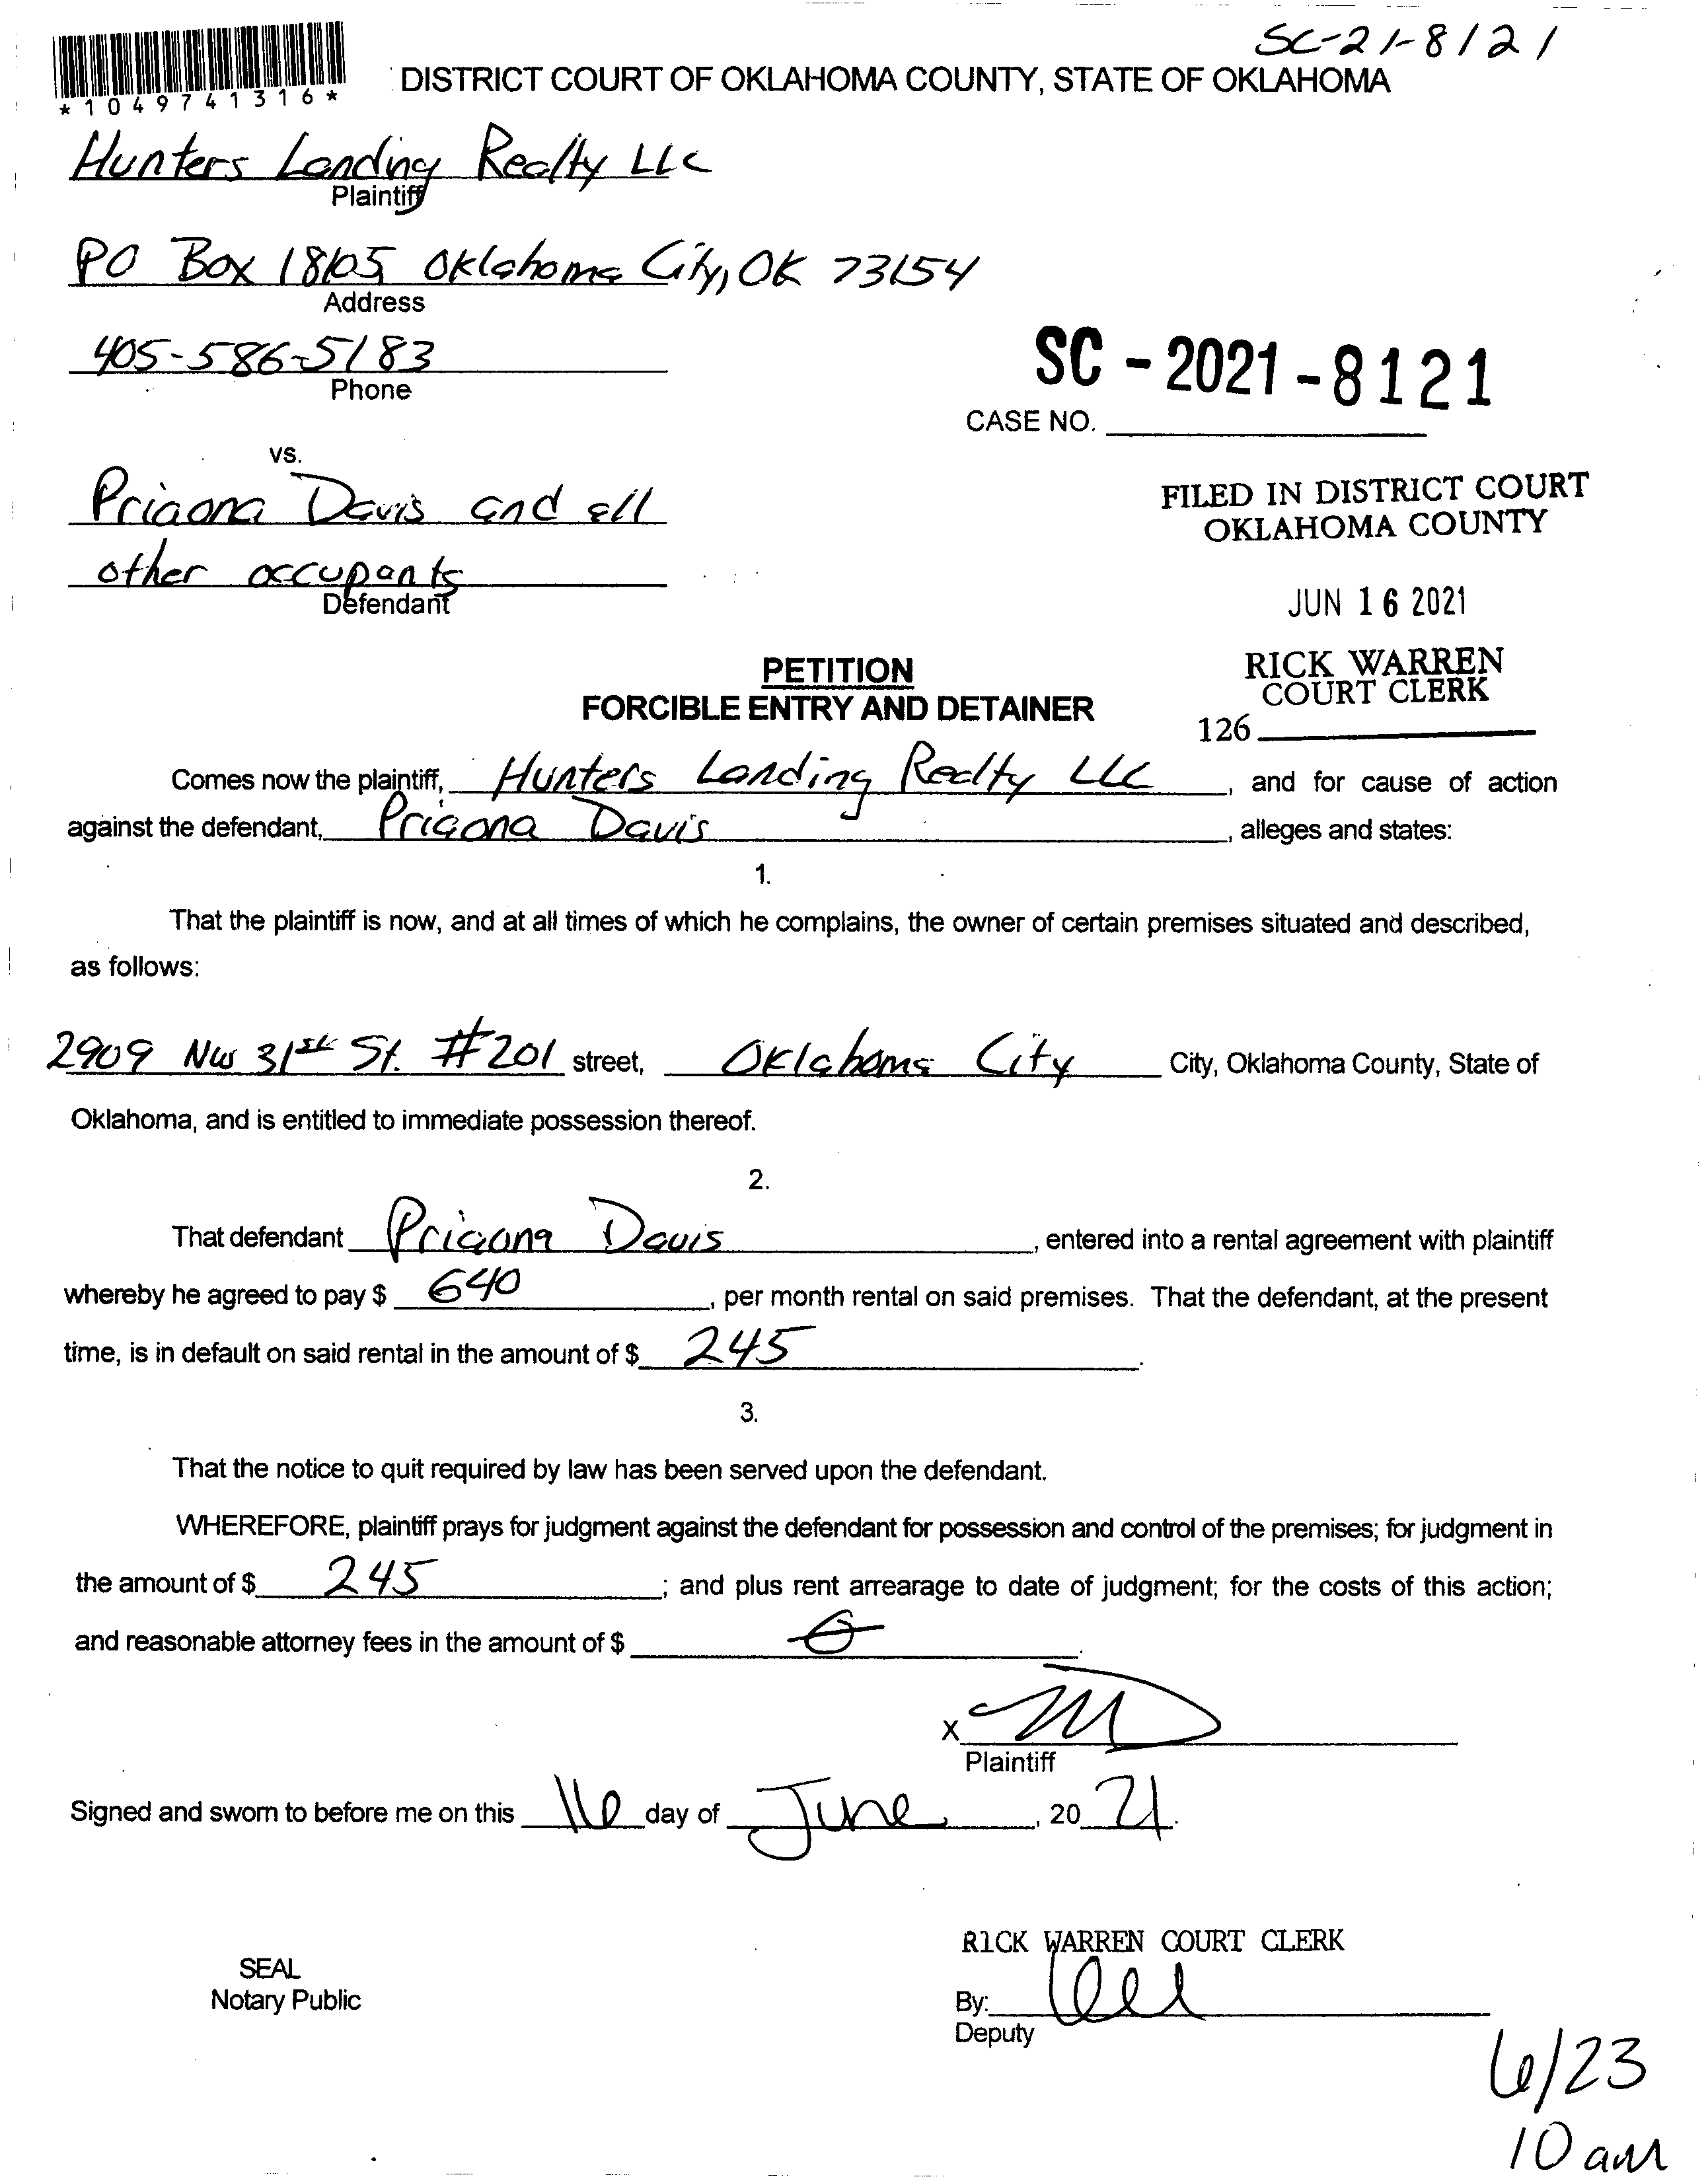 SC-21-8121
*1049741316*
DISTRICT COURT OF OKLAHOMA COUNTY, STATE OF OKLAHOMA
Hunters Landing Realty LLC
Plaintiff
PO Box 18105 Oklahoma City, OK 73154
Address
405-586-5183
Phone
SC - 2021 - 8121
CASE NO.
vs.
Priaona Davis and all
other occupants
Defendant
FILED IN DISTRICT COURT
OKLAHOMA COUNTY
JUN 16 2021
RICK WARREN
COURT CLERK
126
PETITION
FORCIBLE ENTRY AND DETAINER
Comes now the plaintiff, Hunters Landing Realty LLC, and for cause of action
against the defendant, Priaona Davis, alleges and states:
1.
That the plaintiff is now, and at all times of which he complains, the owner of certain premises situated and described,
as follows:
2909 NW 31st St. #201 street, Oklahoma City City, Oklahoma County, State of
Oklahoma, and is entitled to immediate possession thereof.
2.
That defendant Priaona Davis, entered into a rental agreement with plaintiff
whereby he agreed to pay $ 640, per month rental on said premises. That the defendant, at the present
time, is in default on said rental in the amount of $ 245.
3.
That the notice to quit required by law has been served upon the defendant.
WHEREFORE, plaintiff prays for judgment against the defendant for possession and control of the premises; for judgment in
the amount of $ 245; and plus rent arrearage to date of judgment; for the costs of this action;
and reasonable attorney fees in the amount of $ 0.
X
Plaintiff
Signed and sworn to before me on this 16 day of June, 20 21.
SEAL
Notary Public
RICK WARREN COURT CLERK
By:
Deputy
6/23
10 am